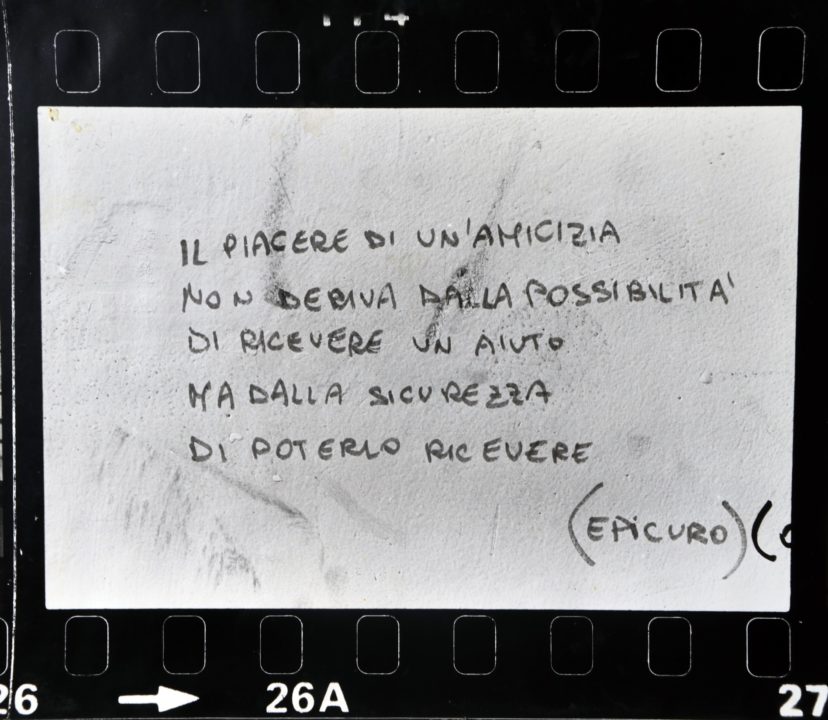 IL PIACERE DI UN'AMICIZIA
NON DERIVA DALLA POSSIBILITA'
DI RICEVERE UN AIUTO
MA DALLA SICUREZZA
DI POTERLO RICEVERE
(EPICURO) (
26 26A 27